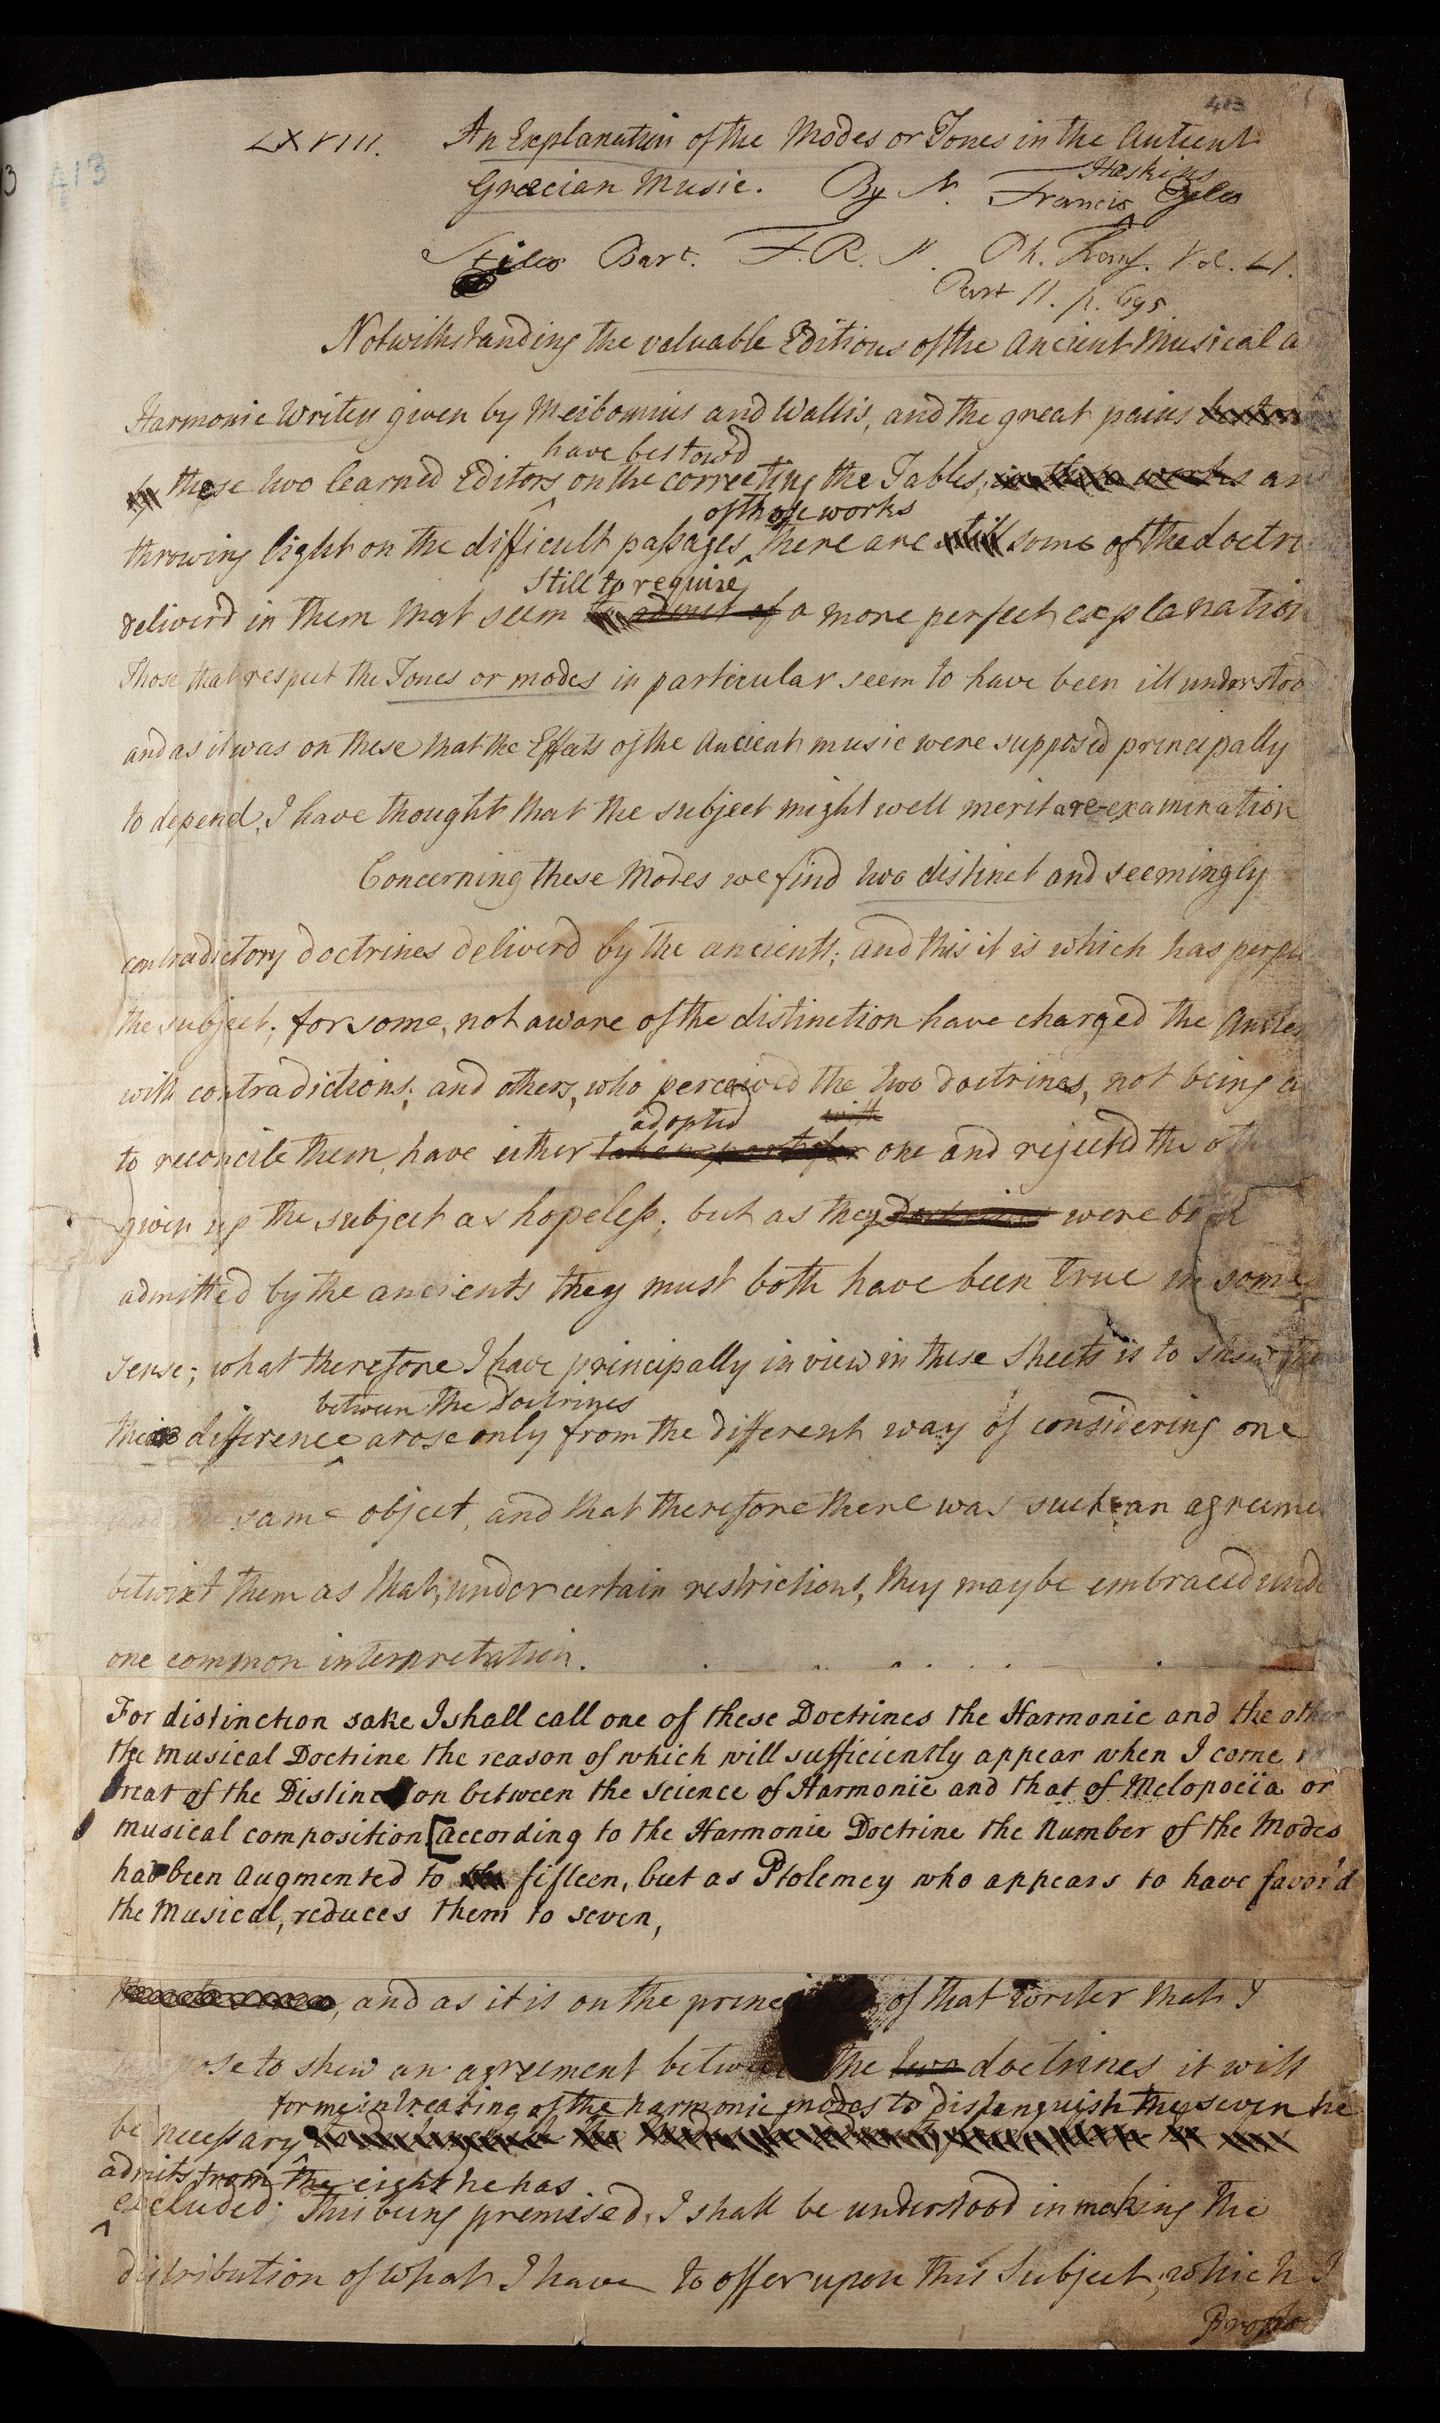 413
413
LXVIII. An Explanation of the Modes or Tones in the Antient
Haskins
Grecian Music. By Sr. Francis Eyles
Stiles Bart. F. R. S. Ph. Trans. Vol. LI.
Part II. p. 695
Notwithstanding the valuable Editions of the Ancient Musical a
Harmonic Writers given by Meibomius and Wallis, and the great pains
have bestow'd
these two learned Editors on the correcting the Tables, in them works an
of those works
throwing light on the difficult passages, there are still some of the doctri
Still to require
deliver'd in them that seem to admit of a more perfect explanation
Those that respect the Tones or modes in particular seem to have been ill understoo
and as it was on these that the Effects of the Ancient music were supposed principally
to depend, I have thought that the subject might well merit a re-examination
Concerning these Modes we find two distinct and seemingly
contradictory doctrines deliver'd by the ancients; and this it is which has perple
the subject; for some, not aware of the distinction have charged the Ancien
with contradictions; and others, who perceived the two doctrines, not being a
adopted with
to reconcile them, have either taken part for one and rejected the oth
given up the subject as hopeless; but as they doctrines were both
admitted by the ancients they must both have been true in some
sense; what therefore I have principally in view in these Sheets is to shew the
between the Doctrines
difference arose only from the different way of considering one
same object, and that therefore there was such an agreeme
betwixt them as that, under certain restrictions, they may be embraced unde
one common interpretation.
For distinction sake I shall call one of these Doctrines the Harmonic and the other
the Musical Doctrine the reason of which will sufficiently appear when I come
treat of the Distinction between the science of Harmonic and that of Melopoeiia or
musical composition [According to the Harmonic Doctrine the Number of the Modes
had been Augmented to fifteen, but as Ptolemey who appears to have favor'd
the Musical, reduces them to seven,
, and as it is on the of that Writer that I
to shew an agreement between the two doctrines it will
for me in treating of the harmonic modes to distinguish the seven he
be necessary
admits from the eight he has
excluded. This being premised, I shall be understood in making the
distribution of what I have to offer upon this Subject, which I
Propo